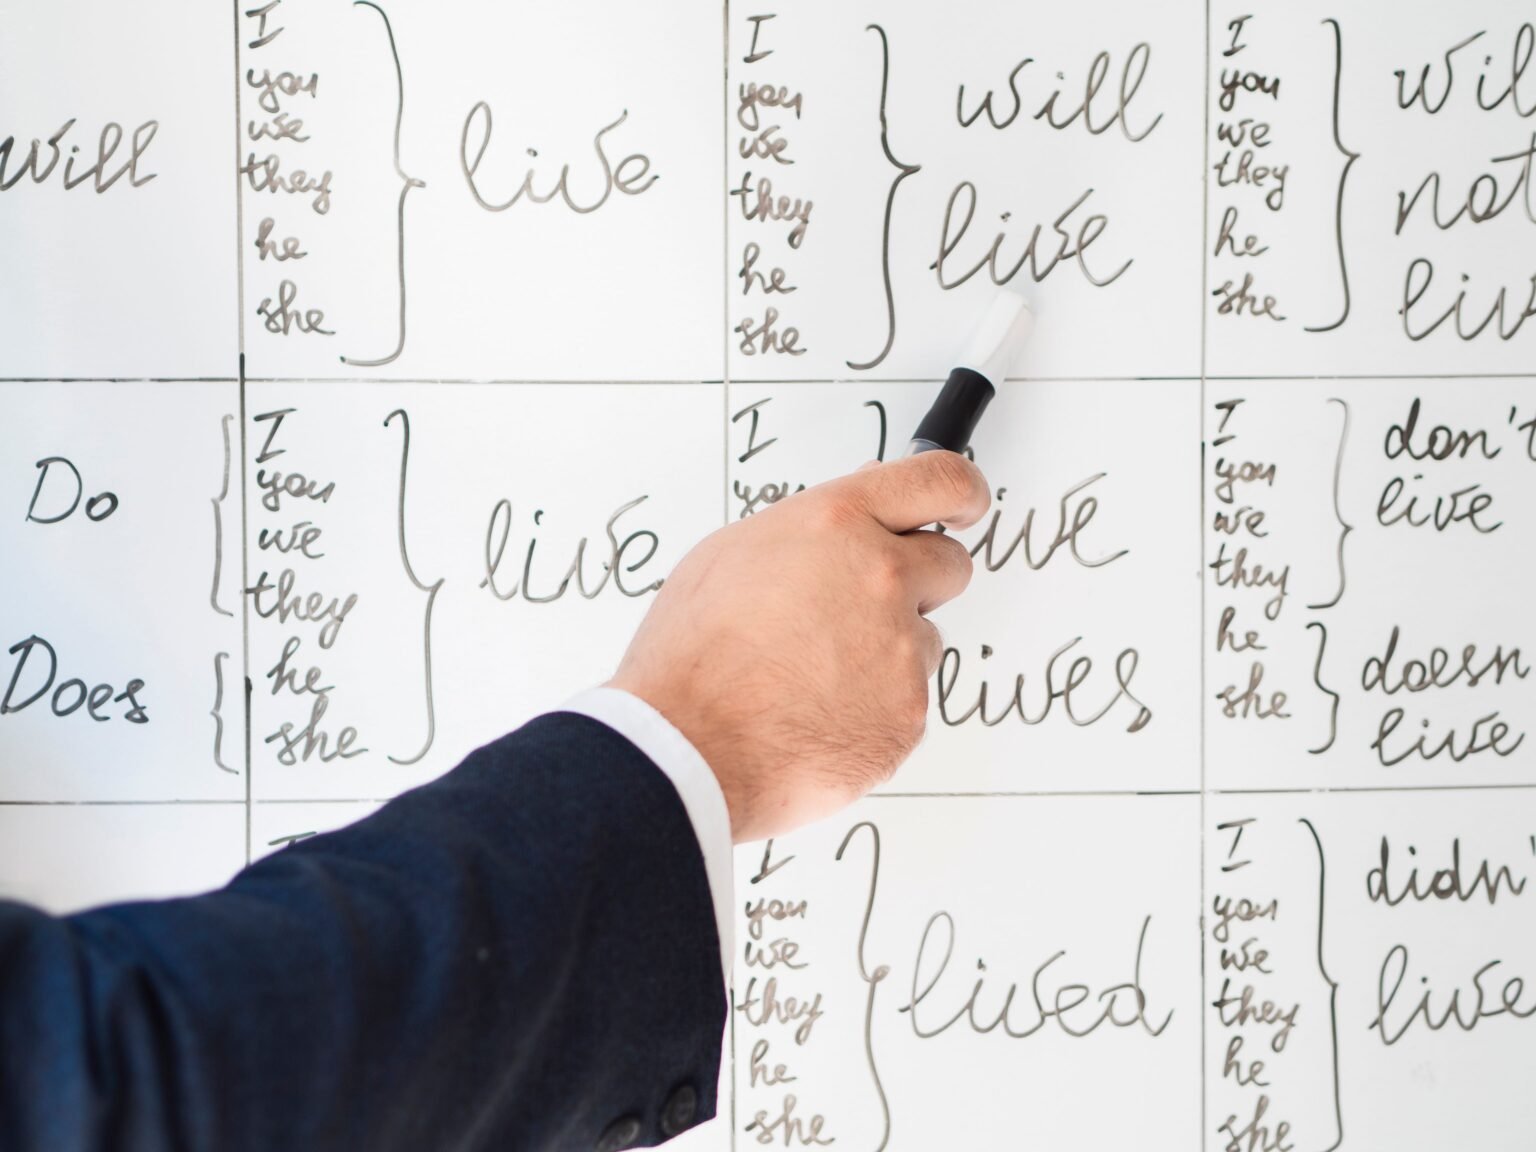 will
I
you
we
they
he
she
live
I
you
we
they
he
she
will
live
I
you
we
they
he
she
wil
not
liv
Do
Does
I
you
we
they
he
she
live
I
you
live
lives
I
you
we
they
he
she
don't
live
doesn
live
I
I
you
we
they
he
she
lived
I
you
we
they
he
she
didn'
live